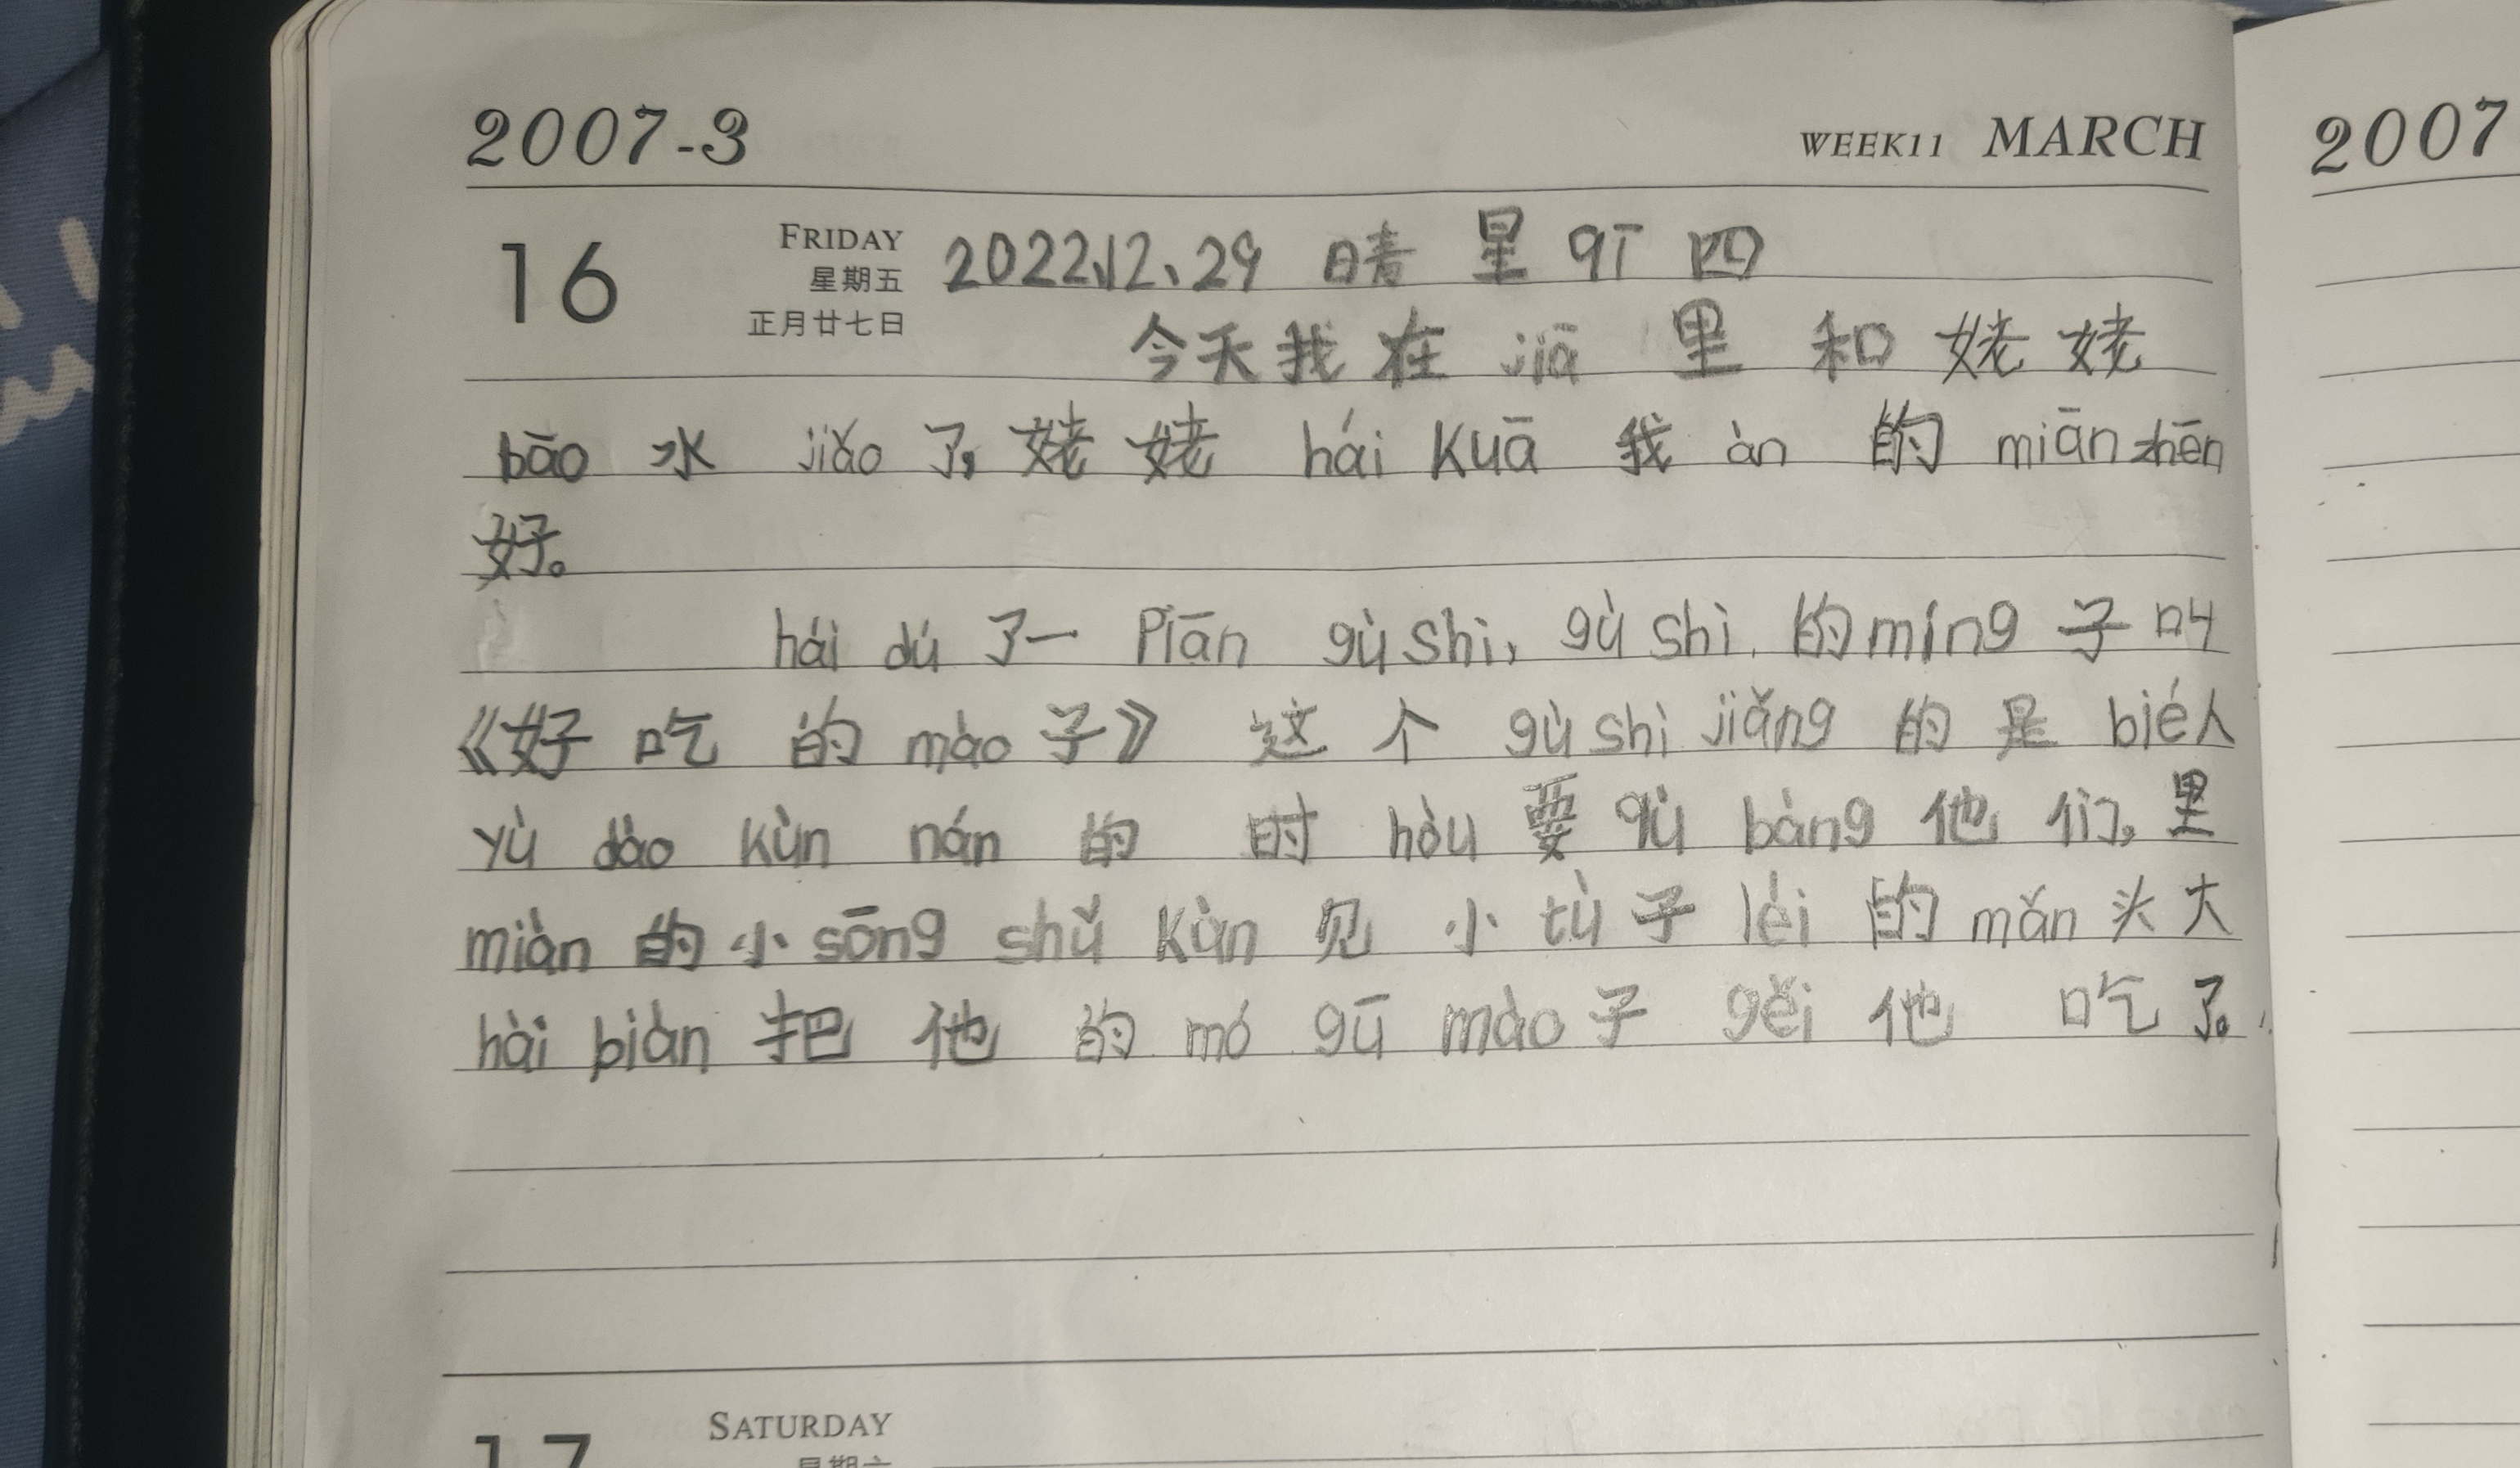 2007-3 WEEK11 MARCH 2007
16 FRIDAY 2022、12、29 晴 星 qī 四
星期五
正月廿七日 今天我在 jiā 里 和 姥姥
bāo 水 jiǎo 了,姥姥 hái Kuā 我 àn 的 miān zhēn
好。
hái dú 了一 Piān gù shì, gù shì 的 míng 子 叫
《好 吃 的 mào 子》 这 个 gù shì jiǎng 的 是 bié人
yù dào kùn nán 的 时 hòu 要 qù bàng 他 们。里
miàn 的 小 sōng shǔ kàn 见 小 tù 子 lèi 的 mǎn 头 大
hài biàn 把 他 的 mó gū mào 子 gěi 他 吃 了。
17 SATURDAY
星期六